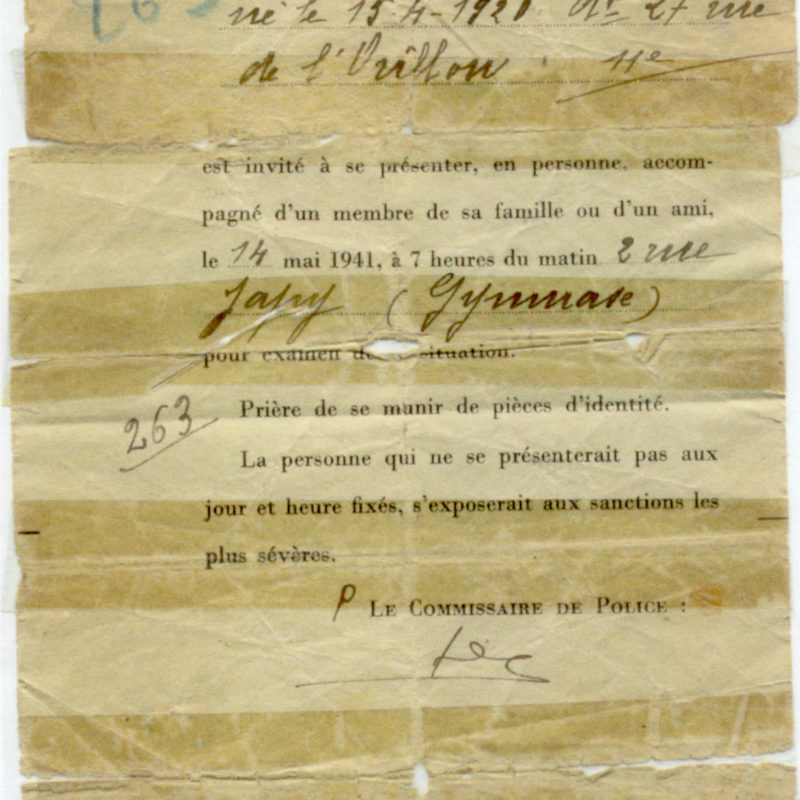 né le 15-4-1920 dt 27 rue
de l'Orillon 11e
est invité à se présenter, en personne, accom-
pagné d'un membre de sa famille ou d'un ami,
le 14 mai 1941, à 7 heures du matin 2 rue
Japy (Gymnase)
pour examen de situation.
263
Prière de se munir de pièces d'identité.
La personne qui ne se présenterait pas aux
jour et heure fixés, s'exposerait aux sanctions les
plus sévères.
P LE COMMISSAIRE DE POLICE :